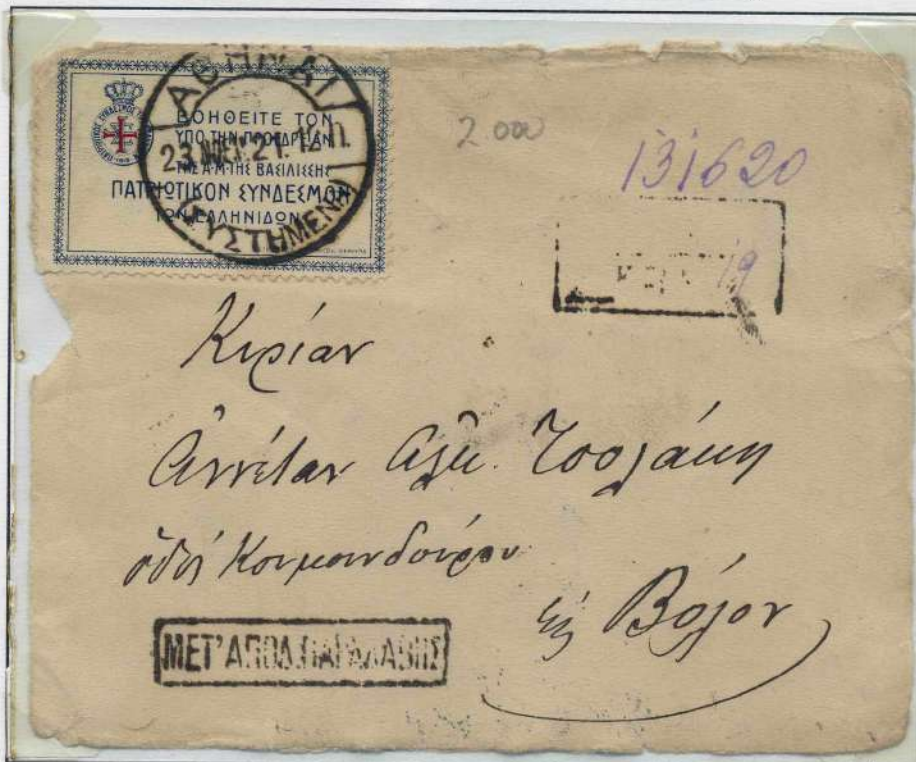 ΑΘΗΝΑΙ
ΒΟΗΘΕΙΤΕ ΤΟΝ
ΥΠΟ ΤΗΝ ΠΡΟΕΔΡΕΙΑΝ
ΤΗΣ Α.Μ.ΤΗΣ ΒΑΣΙΛΙΣΣΗΣ
ΠΑΤΡΙΩΤΙΚΟΝ ΣΥΝΔΕΣΜΟΝ
ΤΩΝ ΕΛΛΗΝΙΔΩΝ
ΣΥΣΤΗΜΕΝΑ
2.000
131620
19
Κυρίαν
Αννέταν Αλεκ. Τσολάκη
οδός Κουμουνδούρου
εις Βόλον
ΜΕΤ' ΑΠΟΔ. ΠΑΡΑΛΑΒΗΣ